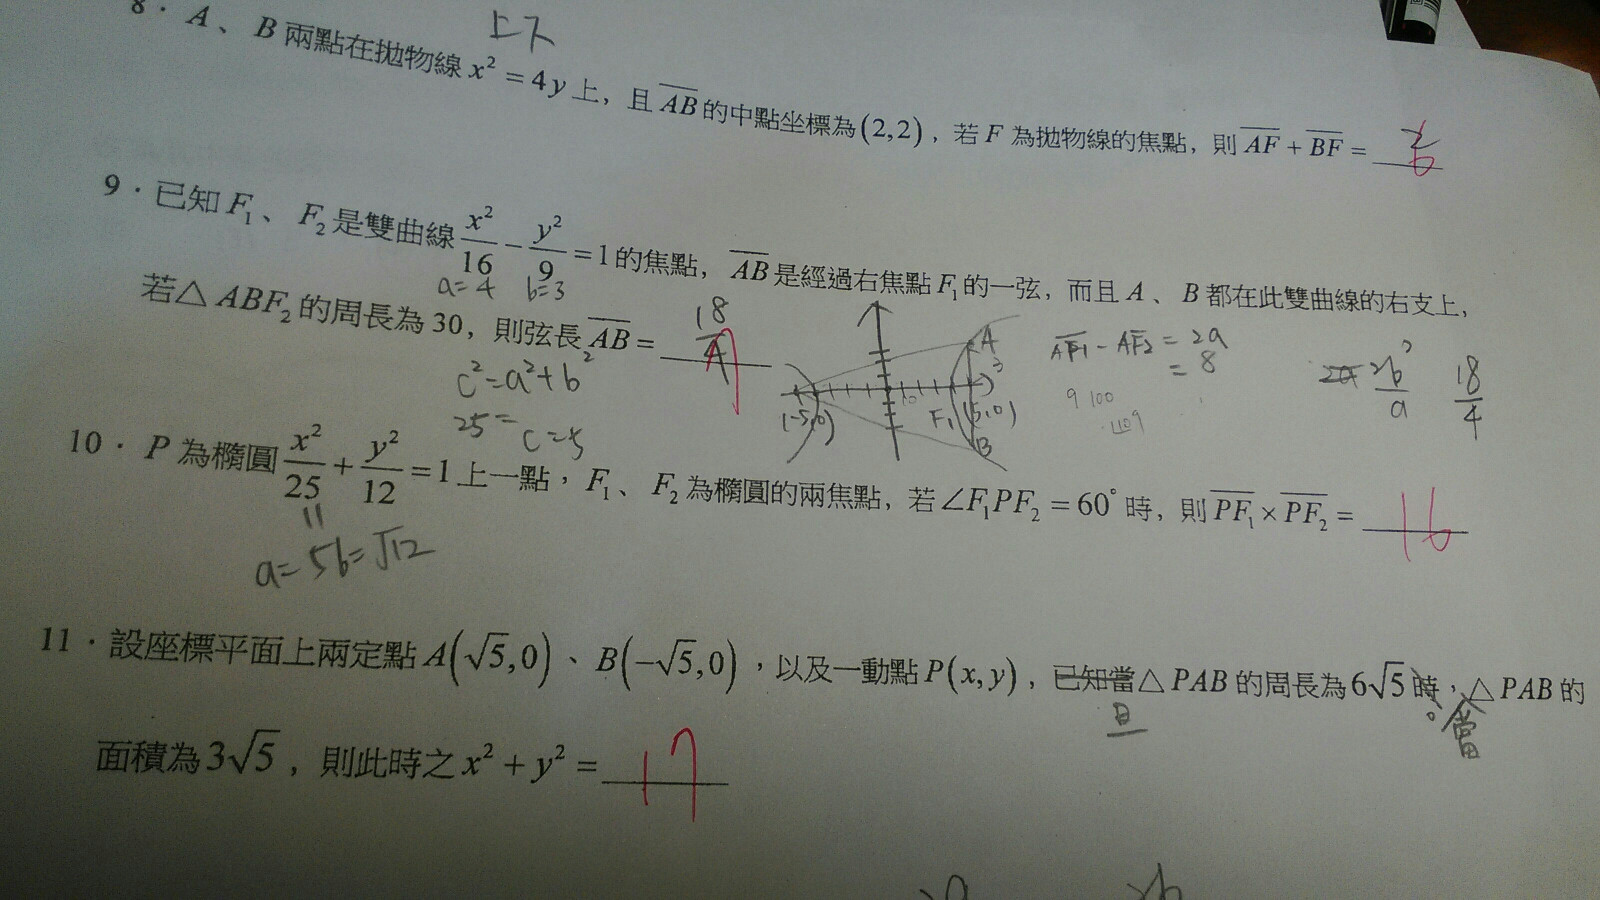 上下
8. A、B兩點在拋物線 x² = 4y 上，且 AB 的中點坐標為(2,2)，若 F 為拋物線的焦點，則 AF + BF = 6
9. 已知 F₁、F₂是雙曲線 x²/16 − y²/9 = 1的焦點，AB是經過右焦點F₁的一弦，而且 A、B都在此雙曲線的右支上，
a=4 b=3
若△ABF₂的周長為30，則弦長AB = 18/4 7
c²=a²+b²
25= c=5
(-5,0) F₁ (5,0) A 3 B
AF₁ − AF₂ = 2a
= 8
9 100
109
2b²/a 18/4
10. P 為橢圓 x²/25 + y²/12 = 1上一點，F₁、F₂為橢圓的兩焦點，若∠F₁PF₂ = 60°時，則PF₁×PF₂ = 16
a=5 b=√12
11. 設座標平面上兩定點A(√5,0)、B(−√5,0)，以及一動點P(x,y)，已知當△PAB的周長為6√5時，△PAB的
且 。當
面積為3√5，則此時之 x² + y² = 17